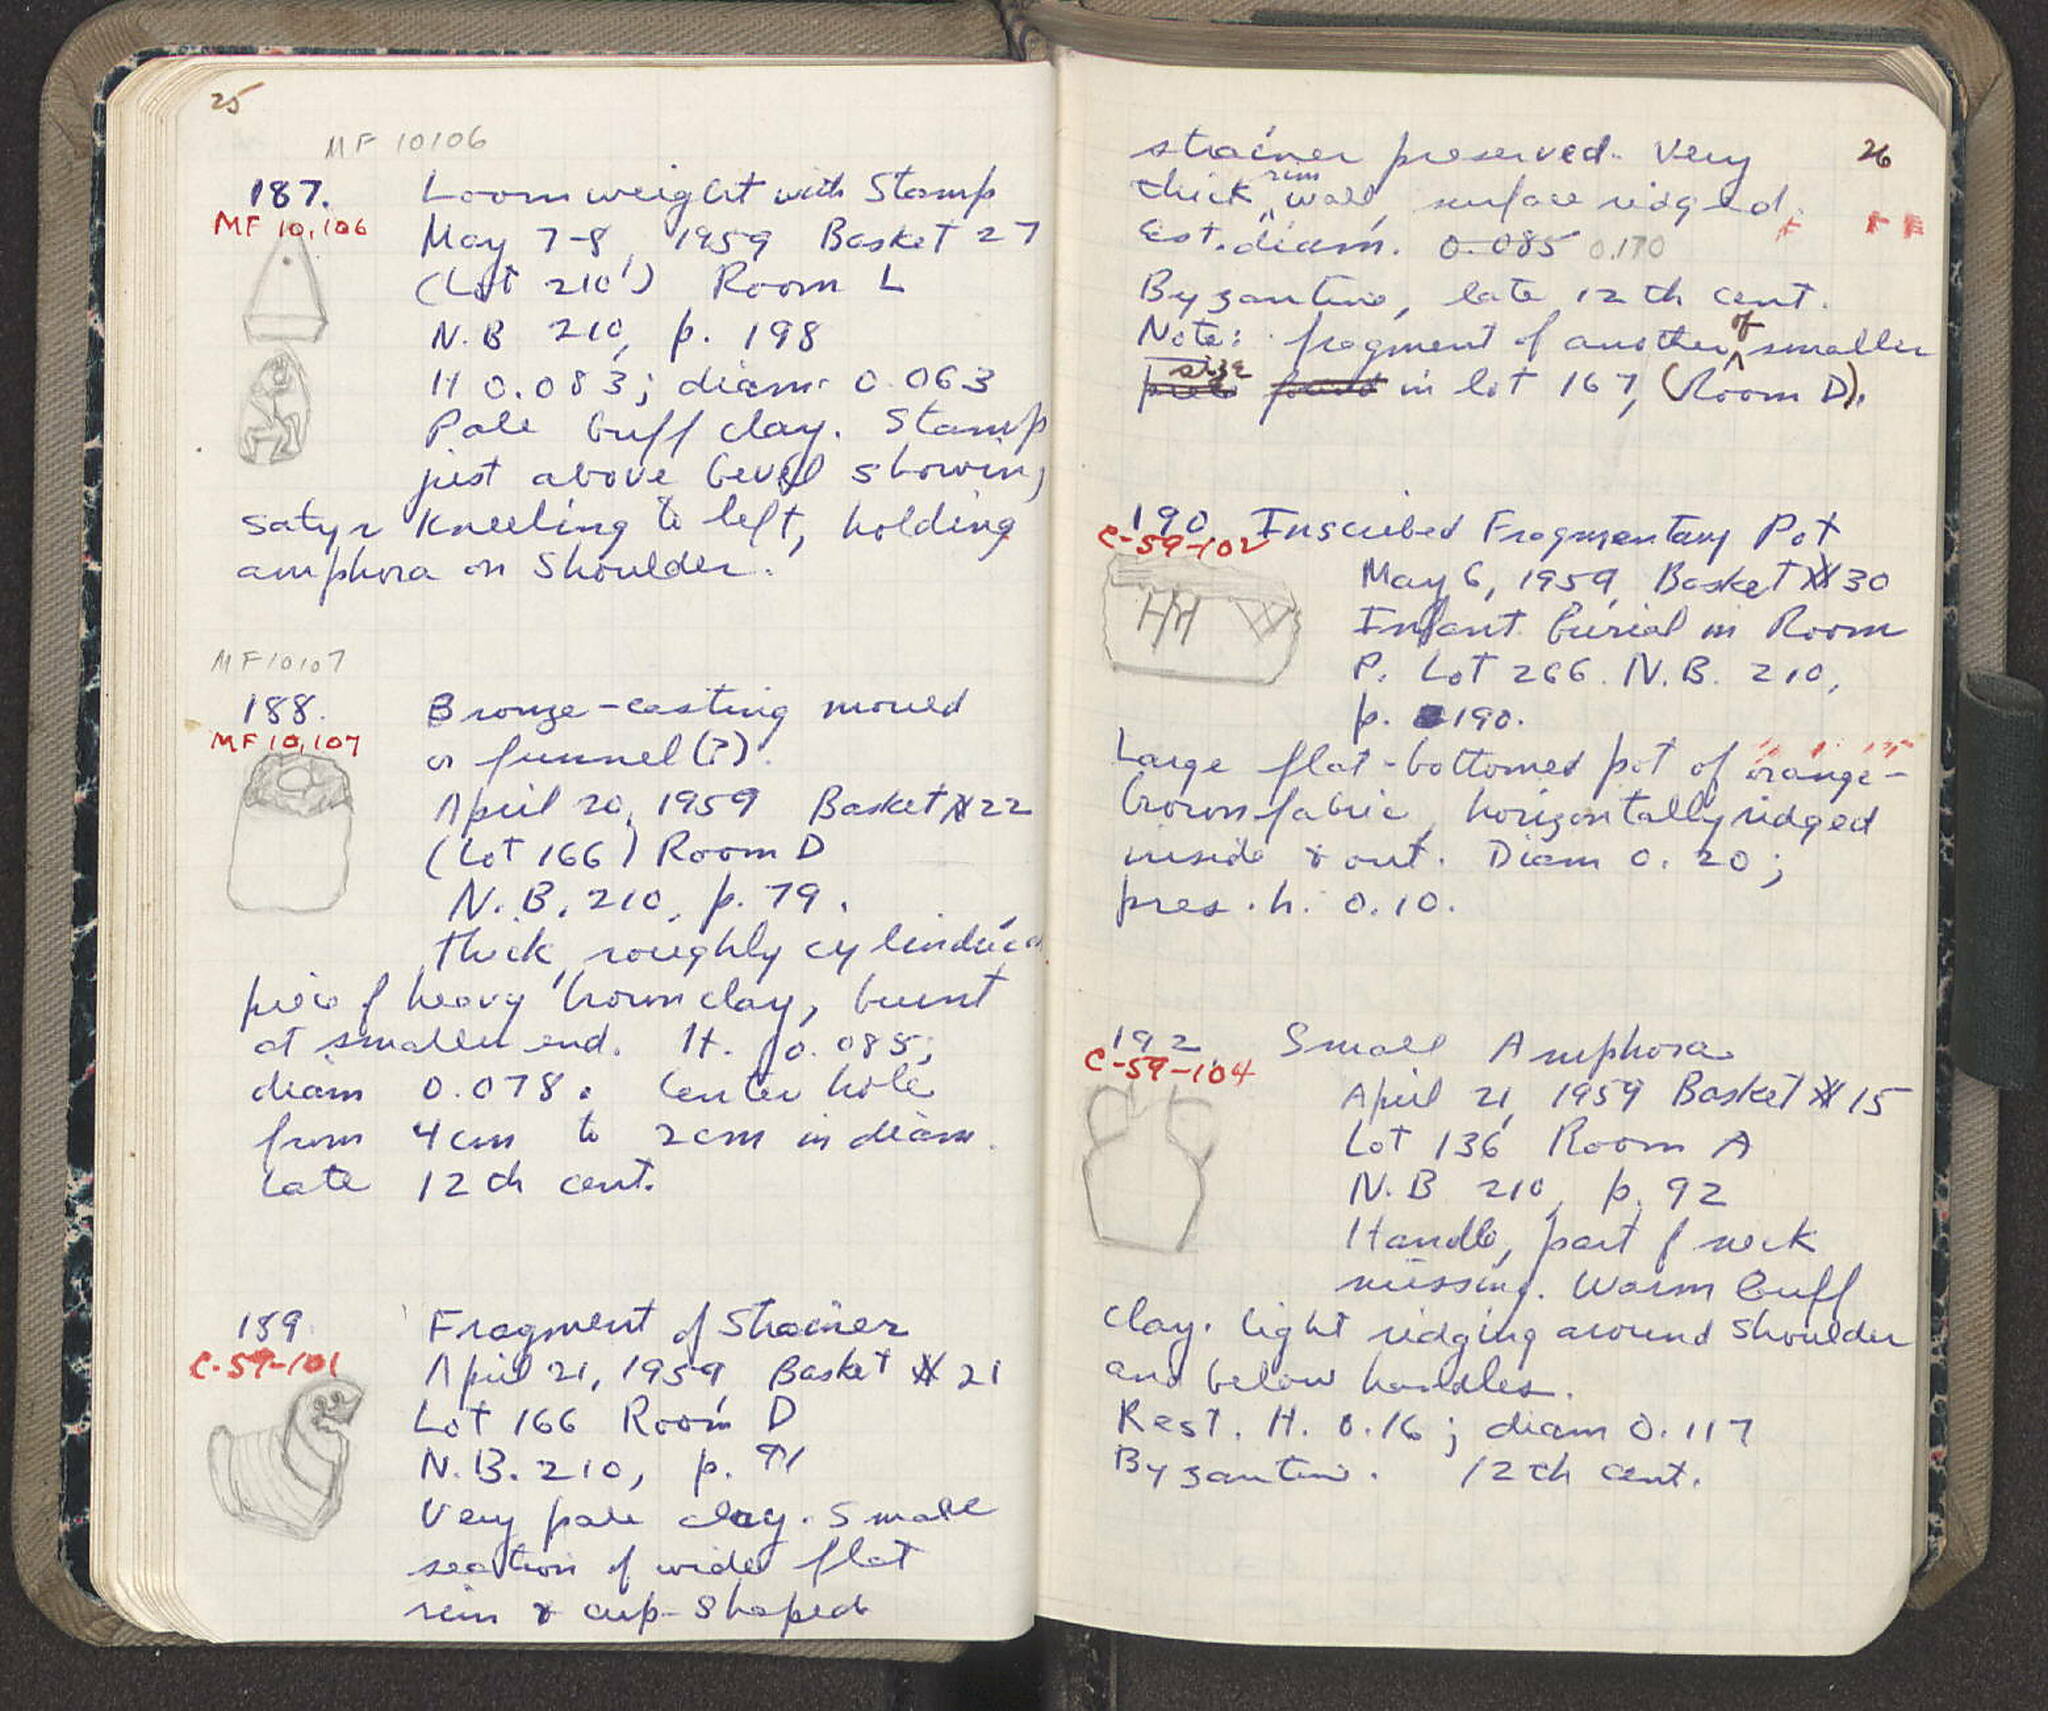 25
MF 10106
187. Loomweight with Stamp
MF 10,106
May 7-8, 1959 Basket 27
(Lot 210') Room L
N.B 210, p. 198
H 0.083; diam. 0.063
Pale buff clay. Stamp
just above bevel showing
satyr kneeling to left, holding
amphora on shoulder.
MF10107
188. Bronze-casting mould
MF 10,107
or funnel (?).
April 20, 1959 Basket # 22
(Lot 166) Room D
N.B. 210, p. 79.
Thick, roughly cylindrical
piece of heavy brown clay, burnt
at smaller end. H. 0.085;
diam 0.078. Center hole
from 4cm to 2cm in diam.
Late 12th cent.
189. Fragment of Strainer
C-59-101
April 21, 1959, Basket # 21
Lot 166 Room D
N.B. 210, p. 91
Very pale clay. Small
section of wide flat
rim & cup-shaped
26
strainer preserved. Very
thick rim wall, surface ridged.
Est. diam. 0.085 0.170
Byzantine, late 12th cent.
Note: fragment of another of smaller
size in lot 167, (Room D).
190 Inscribed Fragmentary Pot
C-59-102
May 6, 1959, Basket # 30
Infant burial in Room
P. Lot 266. N.B. 210,
p. 190.
Large flat-bottomed pot of orange-
brown fabric, horizontally ridged
inside & out. Diam 0.20;
pres. h. 0.10.
192 Small Amphora
C-59-104
April 21, 1959 Basket # 15
Lot 136 Room A
N.B 210, p. 92
Handle, part of neck
missing. Warm buff
clay. Light ridging around shoulder
and below handles.
Rest. H. 0.16; diam 0.117
Byzantine. 12th cent.